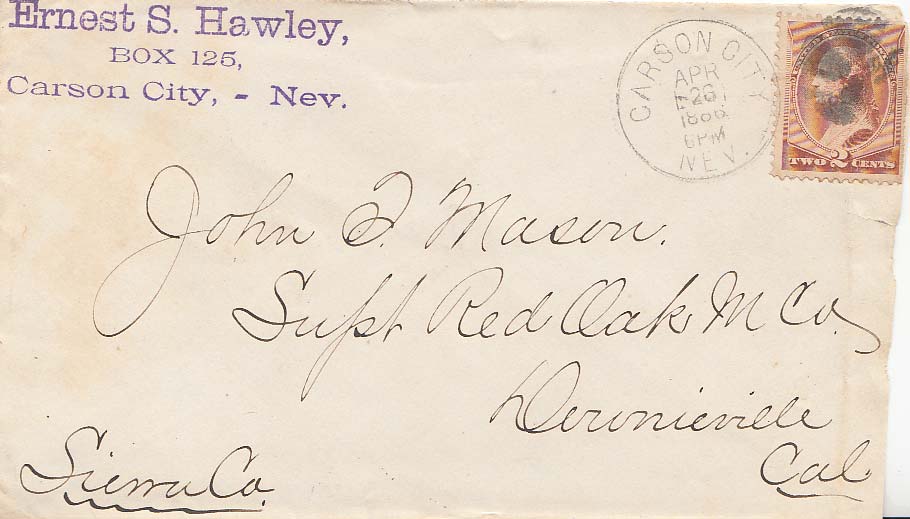 Ernest S. Hawley,
BOX 125,
Carson City, - Nev.
CARSON CITY
APR
26
1886
6PM
NEV.
TWO 2 CENTS
John T. Mason.
Supt Red Oak M Co.
Downieville
Cal
Sierra Co.